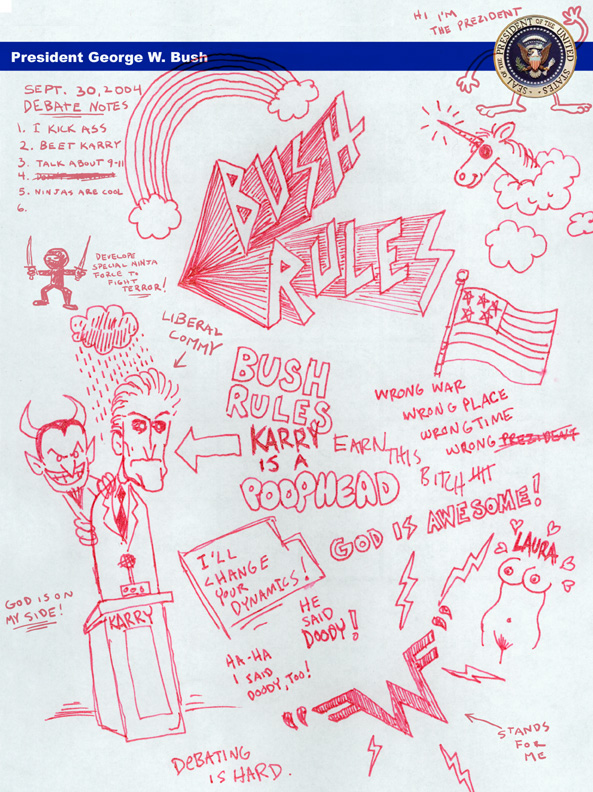 HI I'M
THE PREZIDENT
President George W. Bush
SEAL OF THE PRESIDENT OF THE UNITED STATES
SEPT. 30, 2004
DEBATE NOTES
1. I KICK ASS
2. BEET KARRY
3. TALK ABOUT 9-11
4.
5. NINJAS ARE COOL
6.
BUSH
RULES
DEVELOPE
SPECIAL NINJA
FORCE TO
FIGHT
TERROR!
LIBERAL
COMMY
BUSH
RULES
KARRY
IS A
POOPHEAD
WRONG WAR
WRONG PLACE
WRONG TIME
WRONG PREZIDENT
EARN THIS
BITCH
GOD IS AWESOME!
LAURA
I'LL
CHANGE
YOUR
DYNAMICS!
HE
SAID
DOODY!
GOD IS ON
MY SIDE!
KARRY
HA-HA
I SAID
DOODY, TOO!
"W"
STANDS
FOR
ME
DEBATING
IS HARD.